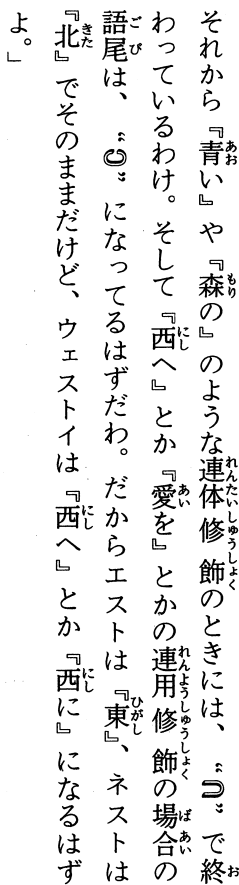 それから『青い』や『森の』のような連体修飾のときには、〝⊃〟で終
わっているわけ。そして『西へ』とか『愛を』とかの連用修飾の場合の
語尾は、〝〟になってるはずだわ。だからエストは『東』、ネストは
『北』でそのままだけど、ウェストイは『西へ』とか『西に』になるはず
よ。」